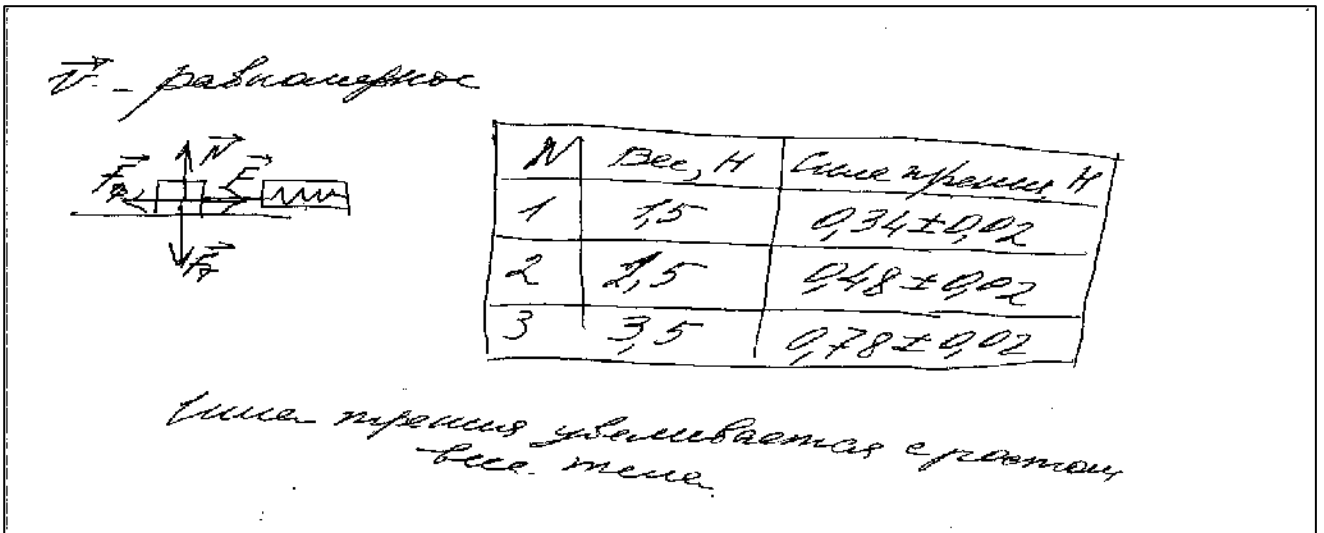 v - равномерное
N
Fтр
F
Fт
N Вес, Н Сила трения, Н
1 1,5 0,34±0,02
2 2,5 0,48±0,02
3 3,5 0,78±0,02
Сила трения увеливается с ростом
веса тела